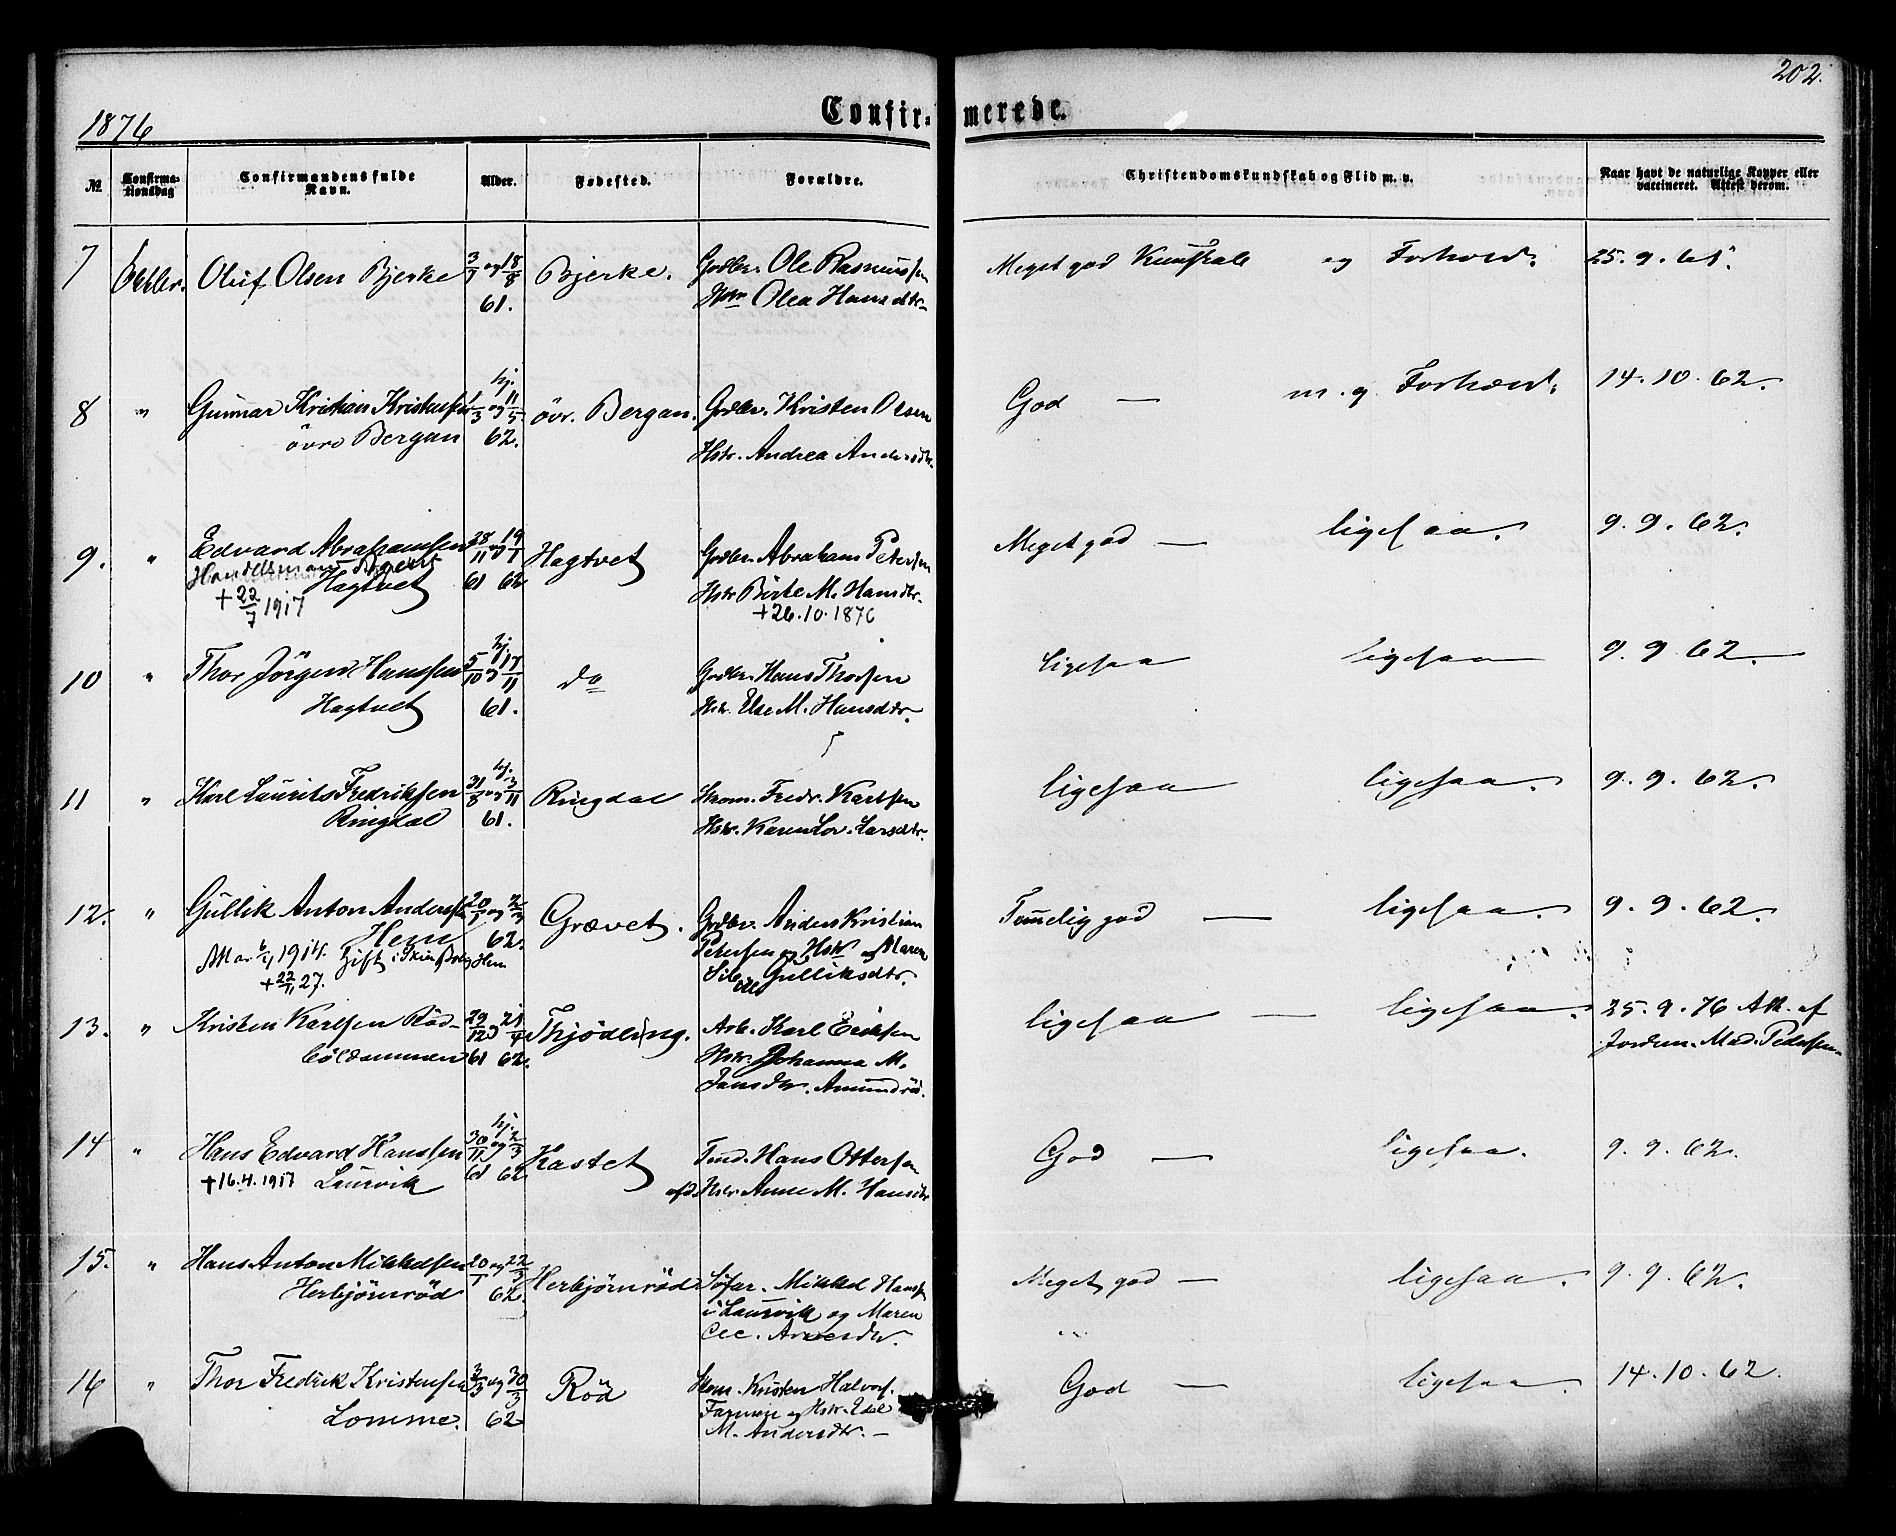 1876
202.
Confirmerede.
№
Confirmationsdag
Confirmandens fulde Navn.
Alder.
Fødested.
Forældre.
Christendomskundskab og Flid m. v.
Naar havt de naturlige Kopper eller vaccineret. Attest derom.
7 Octbr. Oluf Olsen Bjerke 3/7 og 18/8 61. Bjerke. Grdbr. Ole Rasmussen
Hstr Olea Hansdtr
Meget god Kundskab og Forhold. 25. 9. 61.
8 " Gunnar Kristian Kristensen hj. 1/3 og 11/5 62. övr. Bergan. Grdbr. Kristen Olsen
övre Bergan Hstr. Andrea Andersdtr.
God — m. g. Forhold. 14. 10. 62.
9. " Edvard Abrahamsen 28/11 og 19/1 61 62 Hagtvet Grdbr. Abraham Petersen
Handelsmand
Hagtvet Hstr Birte M. Hansdtr.
+ 22/7 1917 +26.10.1876
Meget god — ligesaa. 9. 9. 62.
10 " Thor Jörgen Hanssen hj. 5/10 og 17/11 61. do Grdbr. Hans Thorsen
Hagtvet Hstr. Else M. Hansdtr.
ligesaa ligesaa 9. 9. 62.
11 " Karl Laurits Fredriksen hj. 31/8 og 3/11 61. Ringdal Strom. Fredr. Karlsen
Ringdal Hstr. Karen Lov. Larsdtr.
ligesaa ligesaa. 9. 9. 62.
12. " Gullik Anton Anderssen 20/1 og 2/3 62. Grævet. Grdbr. Anders Kristian
Hem Petersen og Hstr Maren
Mar. 6/4 1914. Gift i Skien Hem
+ 22/11 27. Gulliksdtr.
Temmelig god — ligesaa. 9. 9. 62.
13. " Kristen Karlsen Röd- 29/12 og 21/4 61 62. Thjodling. Arb. Karl Eriksen
böldammen Hstr. Johanna M.
Jansdtr. Amundröd.
ligesaa — ligesaa. 25. 9. 76 Att. af
Jordem. Mad. Pedersen
14 " Hans Edvard Hanssen hj. 30/11 og 2/3 61 62 Kastet Hans Ottersen
+16.4.1917 Laurvik afd. Hstr Anne M. Hansdtr
God — ligesaa. 9. 9. 62.
15. " Hans Anton Mikkelsen 20/1 og 22/3 62. Herbjörnröd Søfar. Mikkel Hanss.
Herbjörnröd i Laurvik og Maren
Cec. Arnesdtr.
Meget god — ligesaa. 9. 9. 62.
16 " Thor Fredrik Kristensen 3/3 og 30/3 62 Röd Kristen Halvors.
Lomme. Farmen og Hstr. Edel
M. Andersdtr. —
God — ligesaa. 14. 10. 62.